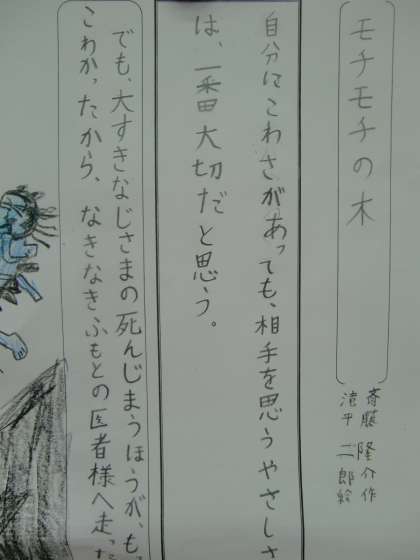 モチモチの木
斎藤 隆介作
滝平 二郎絵
自分にこわさがあっても、相手を思うやさしさ
は、一番大切だと思う。
でも、大すきなじさまの死んじまうほうが、も
こわかったから、なきなきふもとの医者様へ走った